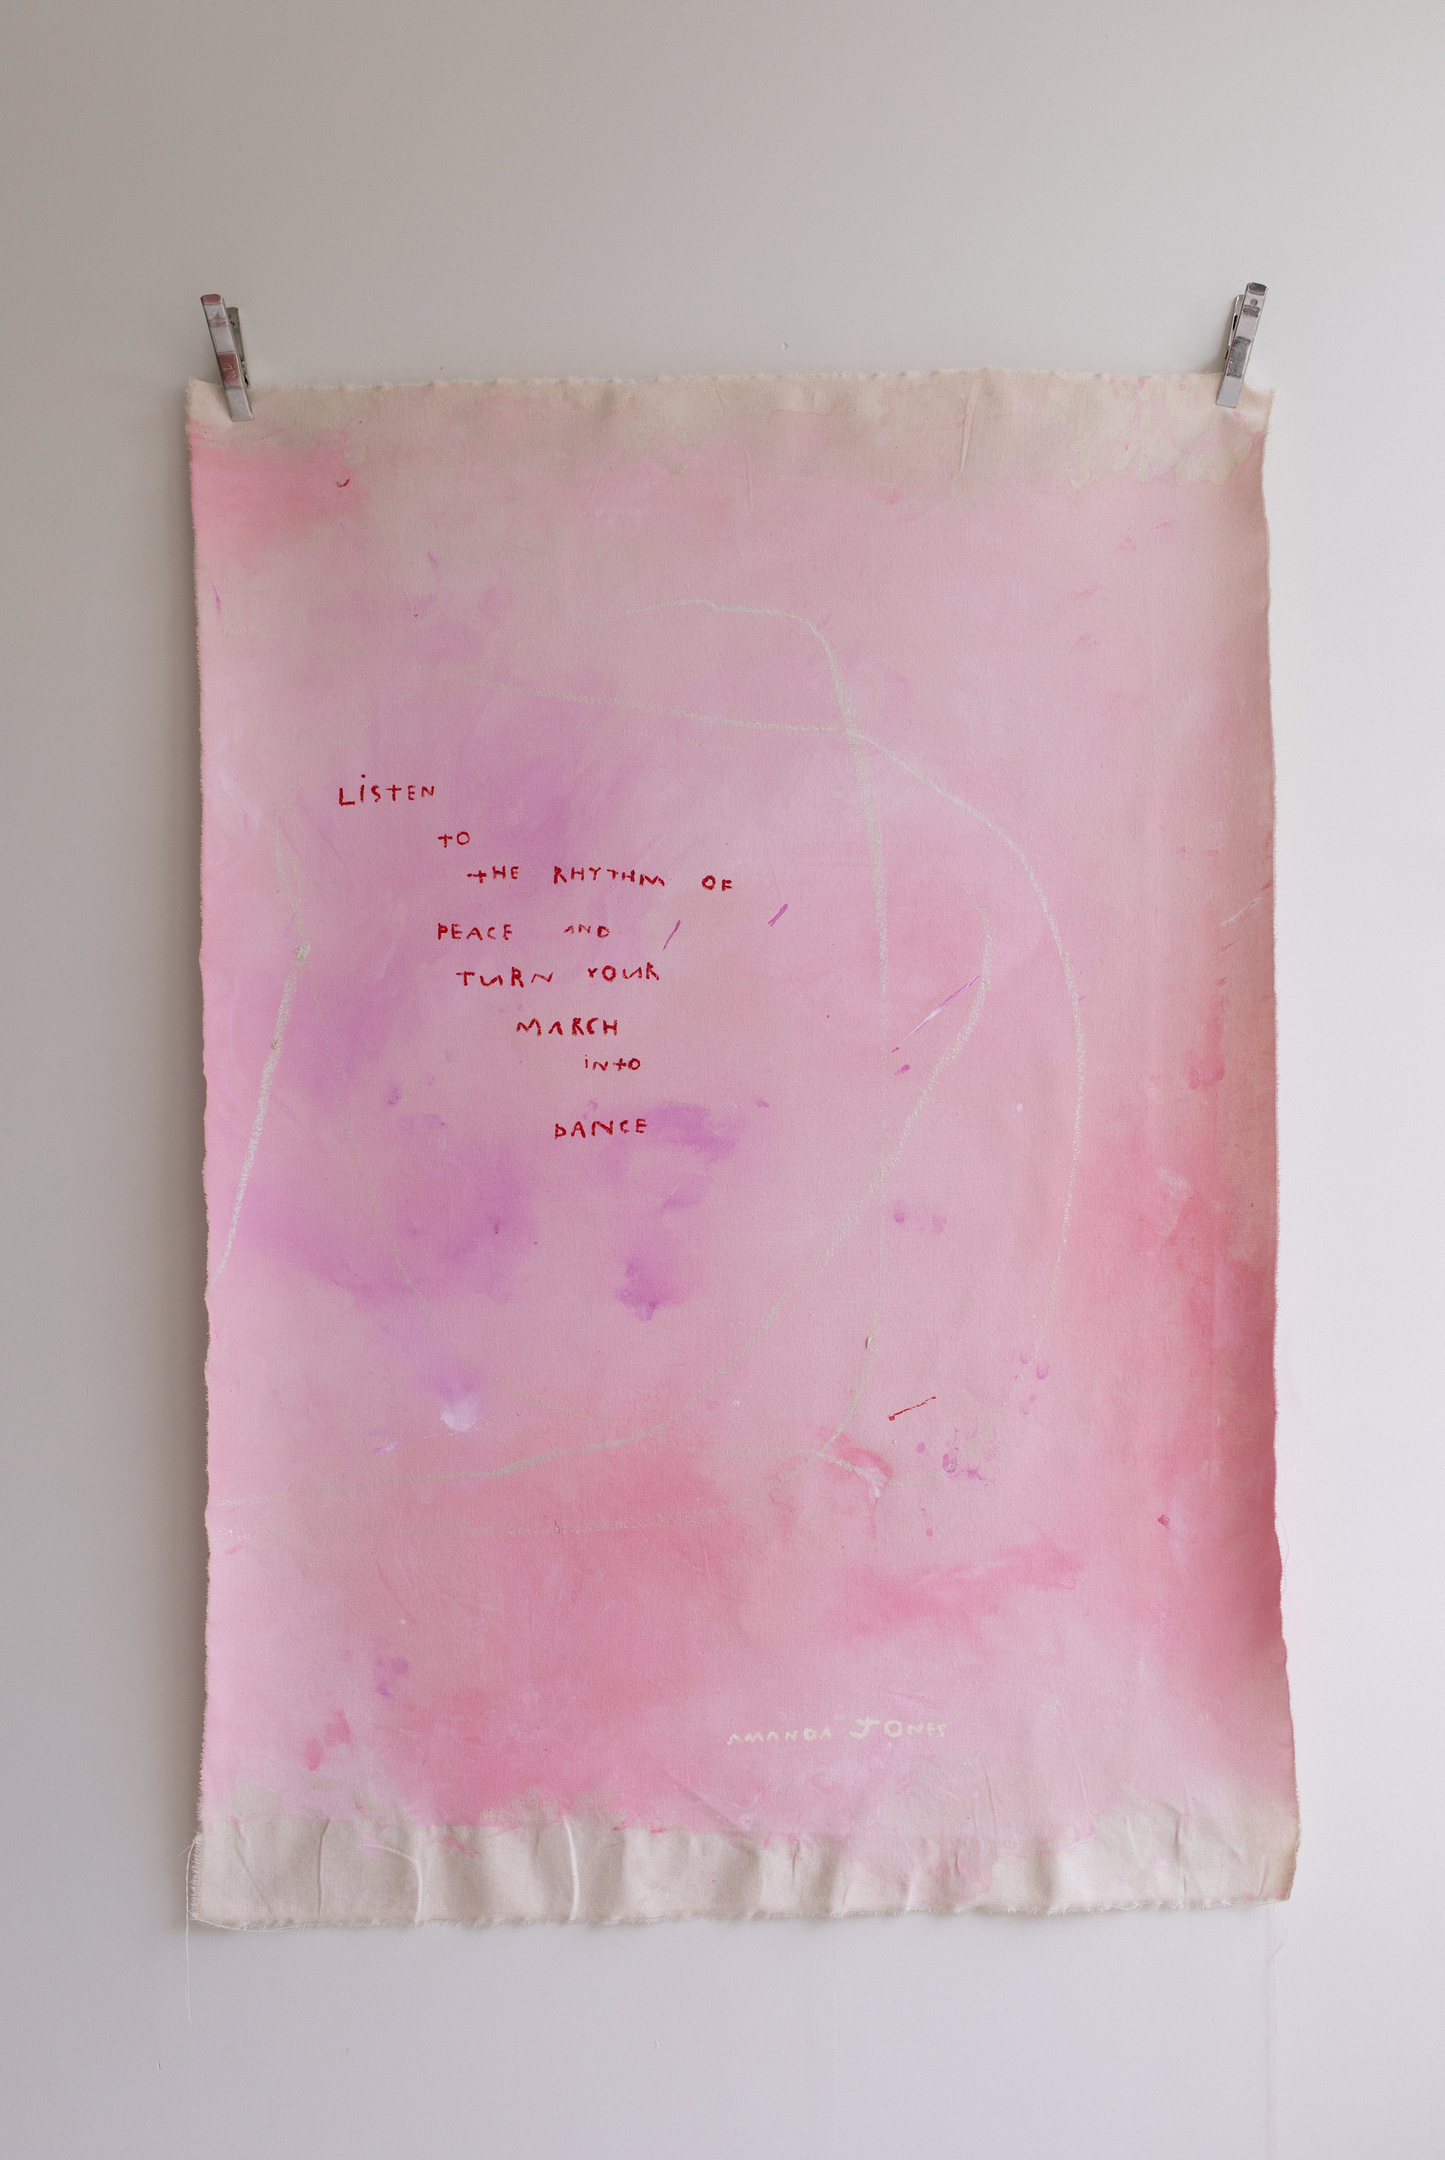 LiSTEN
TO
THE RHYTHM OF
PEACE AND
TURN YOUR
MARCH
iNTO
DANCE
AMANDA JONES